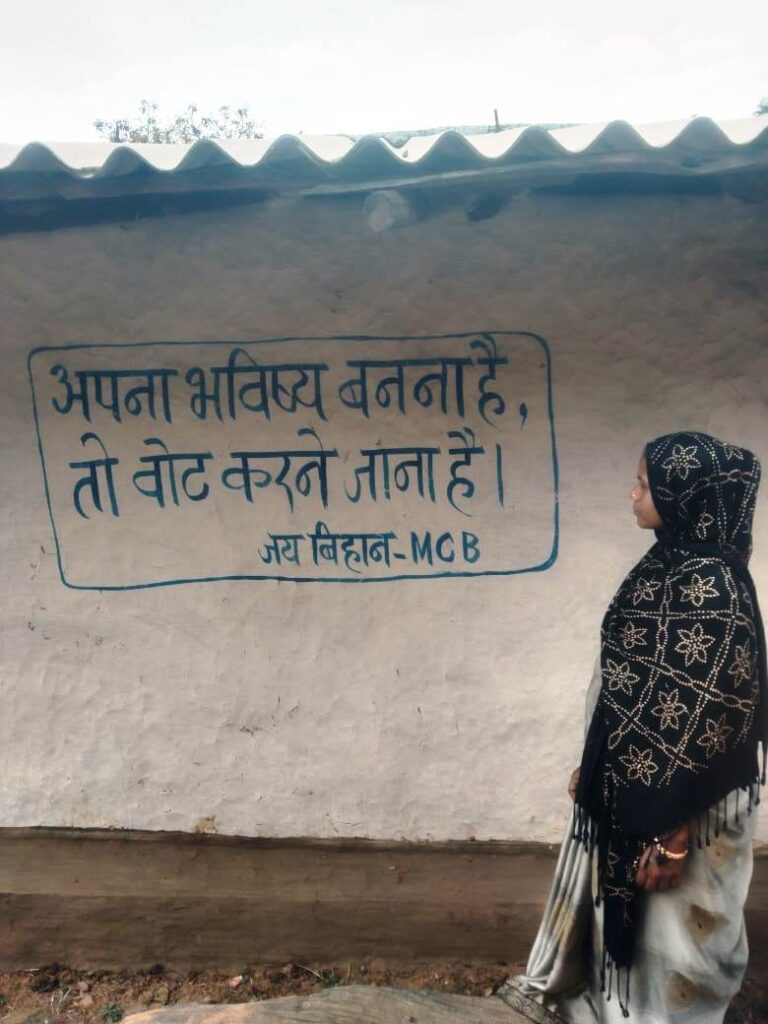 अपना भविष्य बनना है,
तो वोट करने जाना है।
जय बिहान-MCB